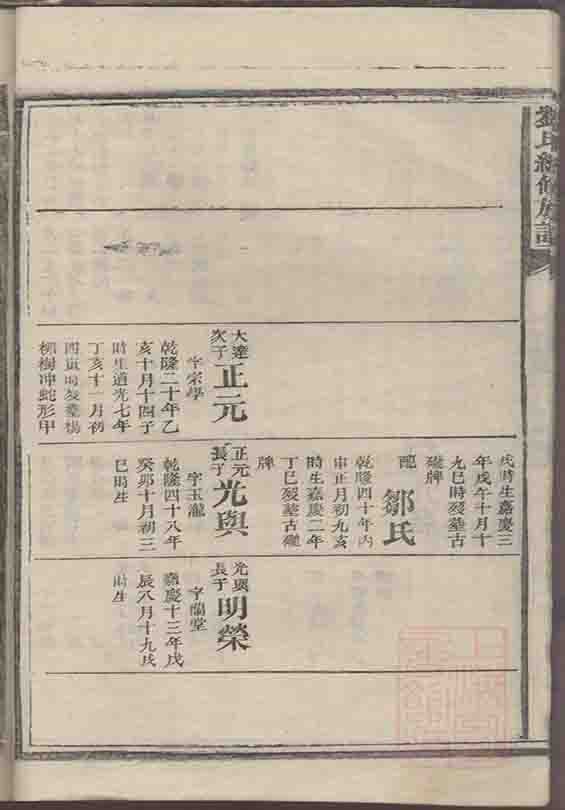 劉氏續修族譜
大達
次子
正元
字宗學
乾隆二十年乙
亥十月十四子
時生道光七年
丁亥十一月初
四寅時歿塟楊
柳樹冲蛇形甲
戌時生嘉慶三
年戊午十月十
九巳時歿塟古
礶牌
配
鄒氏
乾隆四十年丙
申正月初九亥
時生嘉慶二年
丁巳歿塟古礶
牌
正元
長子
光與
字玉瀧
乾隆四十八年
癸卯十月初三
巳時生
光與
長子
明榮
字蘭堂
嘉慶十三年戊
辰八月十九戌
時生